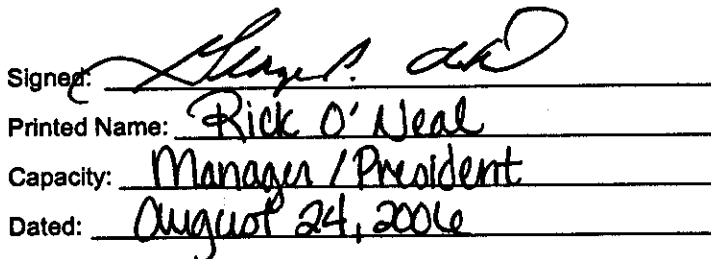 Signed:
Printed Name: Rick O'Neal
Capacity: Manager / President
Dated: August 24, 2006